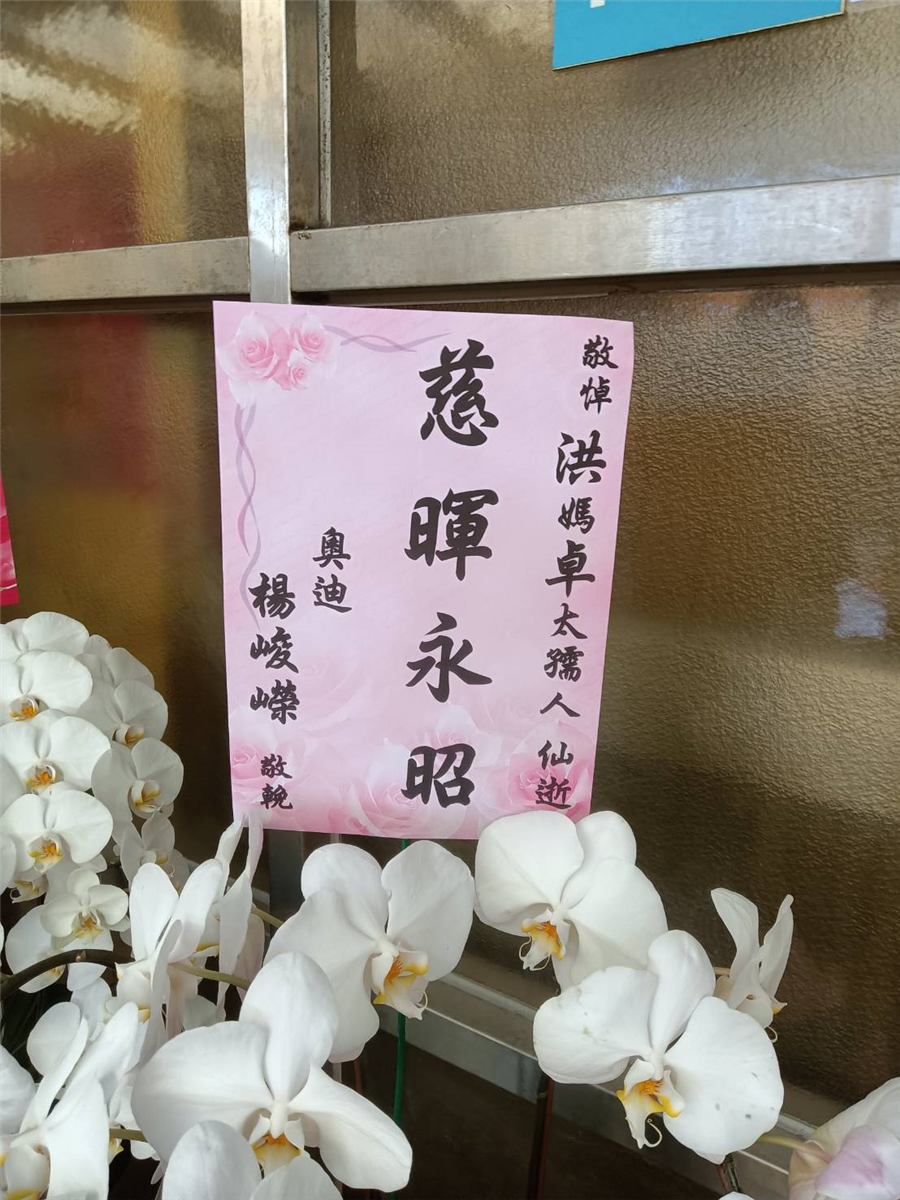 敬悼洪媽卓太孺人仙逝
慈暉永昭
奧迪
楊峻嶸敬輓